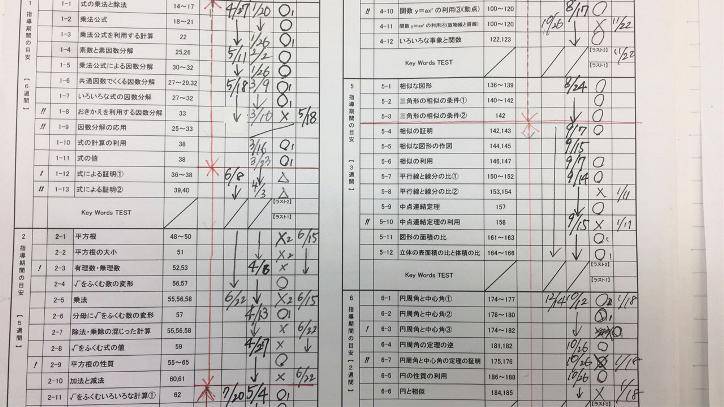 1 指導期間の目安 [6週間]
1-1 式の乗法と除法 14~17 4/27 1/20 O
1-2 乗法公式 18~21 O
1-3 乗法公式を利用する計算 22 1/26 O1
1-4 素数と素因数分解 25,26 5/11 2/2 O
1-5 乗法公式による因数分解 30~32 1/26 O
1-6 共通因数でくくる因数分解 27~29,32 5/18 3/9 O
1-7 いろいろな式の因数分解 27~32 O1
!! 1-8 おきかえを利用する因数分解 33 3/10 × 5/18
!! 1-9 因数分解の応用 25~33
1-10 式の計算の利用 38 3/16 O1
1-11 式の値 38 3/23 O1
! 1-12 式による証明① 36~38 6/8 △
! 1-13 式による証明② 39,40 4/3 △
Key Words TEST 【ラスト1】
2 指導期間の目安 [5週間]
2-1 平方根 48~50 ×2 6/15
2-2 平方根の大小 51 ×2
! 2-3 有理数・無理数 52,53 4/6 ×
2-4 √をふくむ数の変形 56,57 O
2-5 乗法 55,56,58 6/22 ×2 6/15
2-6 分母に√をふくむ数の変形 57 4/13 O1
2-7 除法・乗除の混じった計算 55,56,58 × 6/22
2-8 √をふくむ式の値 59 4/27 ×
! 2-9 平方根の性質 55~65 O
2-10 加法と減法 60,61 × 6/22
2-11 √をふくむいろいろな計算① 62 7/20 5/4 O1
!! 4-10 関数y=ax²の利用③(動点) 100~120 8/17 O
100~120 10/26 × 11/22
4-12 いろいろな事象と関数 122,123
Key Words TEST 【ラスト2】 11/22
5 指導期間の目安 [3週間]
5-1 相似な図形 136~139 8/24 O
5-2 三角形の相似の条件① 140~142 O
5-3 三角形の相似の条件② 142 O
5-4 相似の証明 142,143 9/7 O
5-5 相似な図形の作図 144,145 9/15
5-6 相似の利用 146,147 9/7 O
5-7 平行線と線分の比① 150~152 9/14 O
5-8 平行線と線分の比② 153,154 × 1/11
5-9 中点連結定理 157 O
!! 5-10 中点連結定理の利用 158 9/15 × 1/11
5-11 図形の面積の比 161~163 O
5-12 立体の表面積の比と体積の比 164~166 O
Key Words TEST
6 指導期間の目安 [2週間]
6-1 円周角と中心角① 174~177 12/14 10/12 1/18
6-2 円周角と中心角② 178~180 O
! 6-3 円周角と中心角③ 174~182 O
6-4 円周角の定理の逆 181,182 10/26 O
!! 6-5 円周角と中心角の定理の証明 175,176 1/18
6-6 円の性質の利用 186~188 10/26 O
6-7 円と相似 184,185 × 1/18